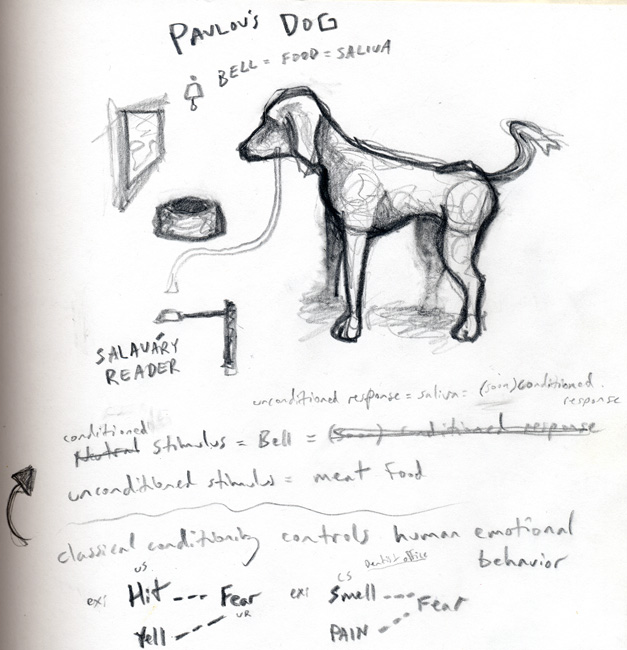 PAVLOV'S DOG
BELL = FOOD = SALIVA
SALAVARY
READER
unconditioned response = saliva = (soon) conditioned
response
conditioned
Nutral Stimulus = Bell = (soon) conditioned response
unconditioned stimulus = meat Food
classical conditioning controls human emotional
behavior
US
ex: Hit --- Fear
UR
Yell
Dentist office
CS
ex: Smell --- Fear
PAIN